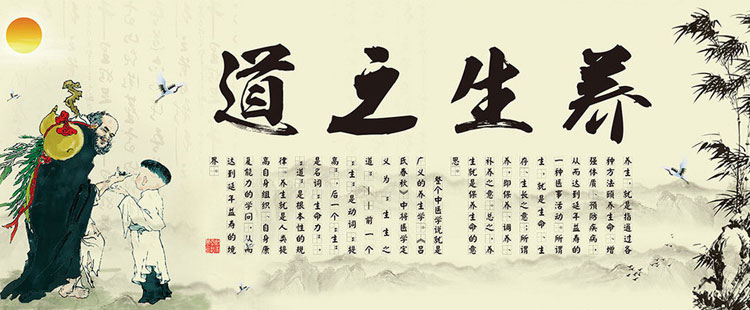 养生之道
养生、就是指通过各
种方法颐养生命、增
强体质、预防疾病、
从而达到延年益寿的
一种医事活动。所谓
生、就是生命、生
存、生长之意；所谓
养、即保养、调养、
补养之意。总之、养
生就是保养生命的意
思。
整个中医学说就是
广义的养生学。《吕
氏春秋》中将医学定
义为“生生之
道”——前一个
“生”是动词、提
高；后一个“生”
是名词、生命力；
“道”是根本性的规
律。养生就是人类提
高自身组织、自身康
复能力的学问、从而
达到延年益寿的境
界。